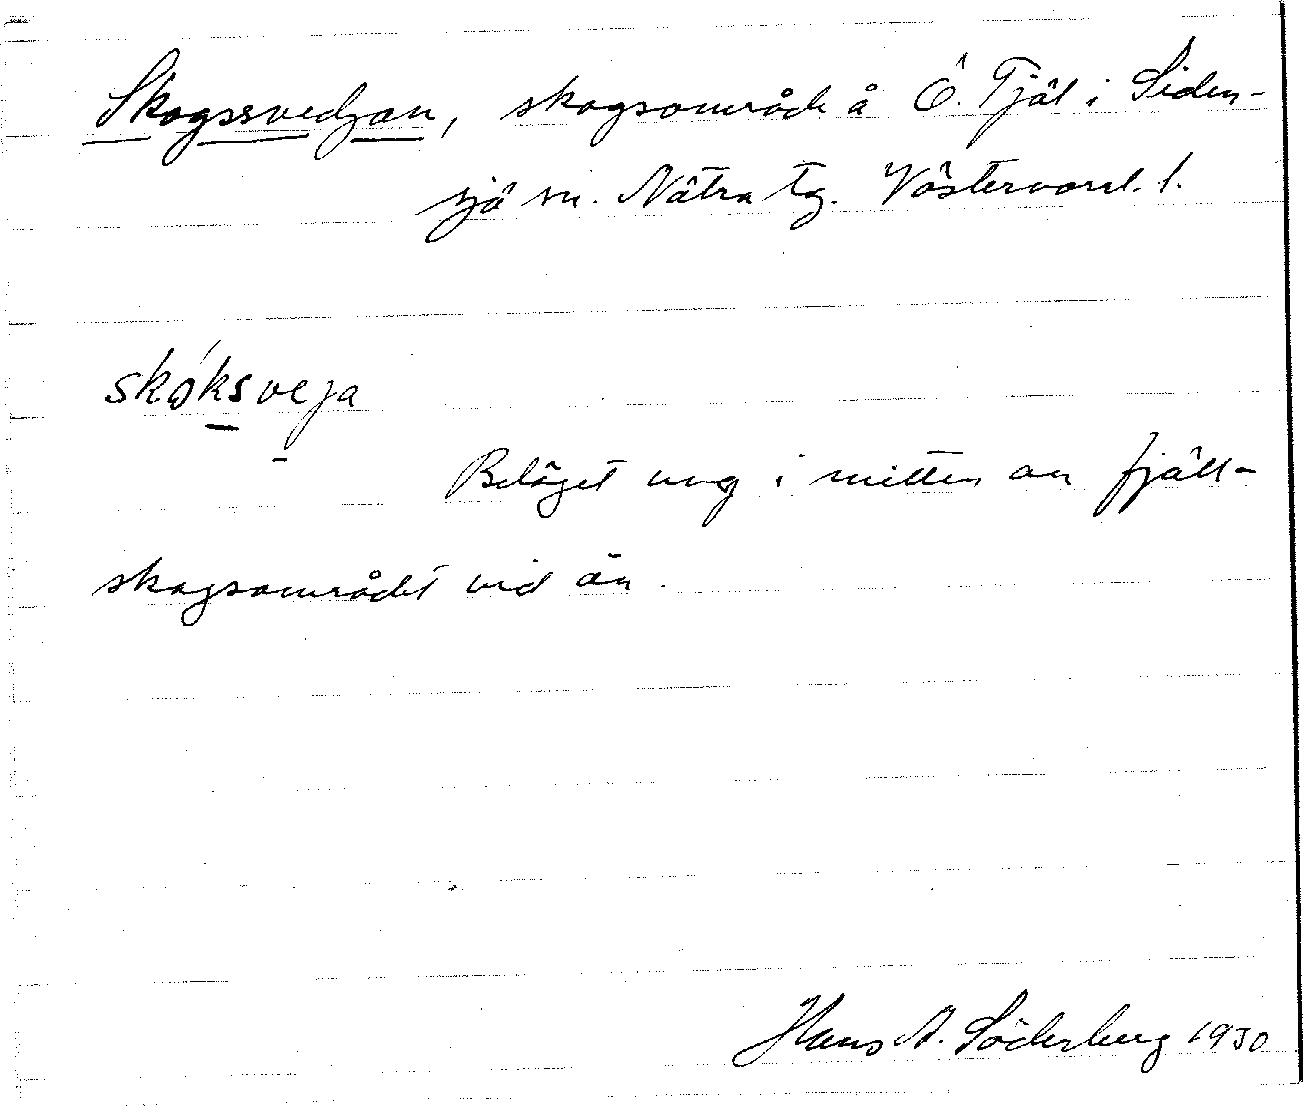 Skogssvedjan, skogsområde å Ö. Tjäl i Siden-
sjö sn. Nätra tg. Västernorrl. l.
skoksveja
Beläget ung i mitten av fjäll-
skogsområdet vid ån.
Hans A. Söderberg 1930